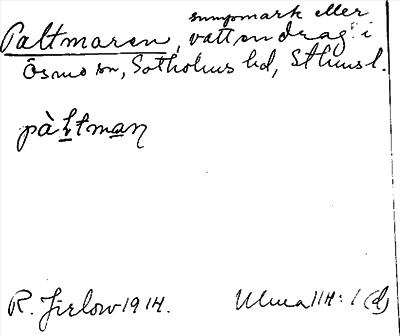 sumpmark eller
Paltmaren, vattendrag? i
Ösmo sn, Sotholms hd, Sthms l.
pàltman
R. Jirlow 1914. Ulma 114:1 (d)